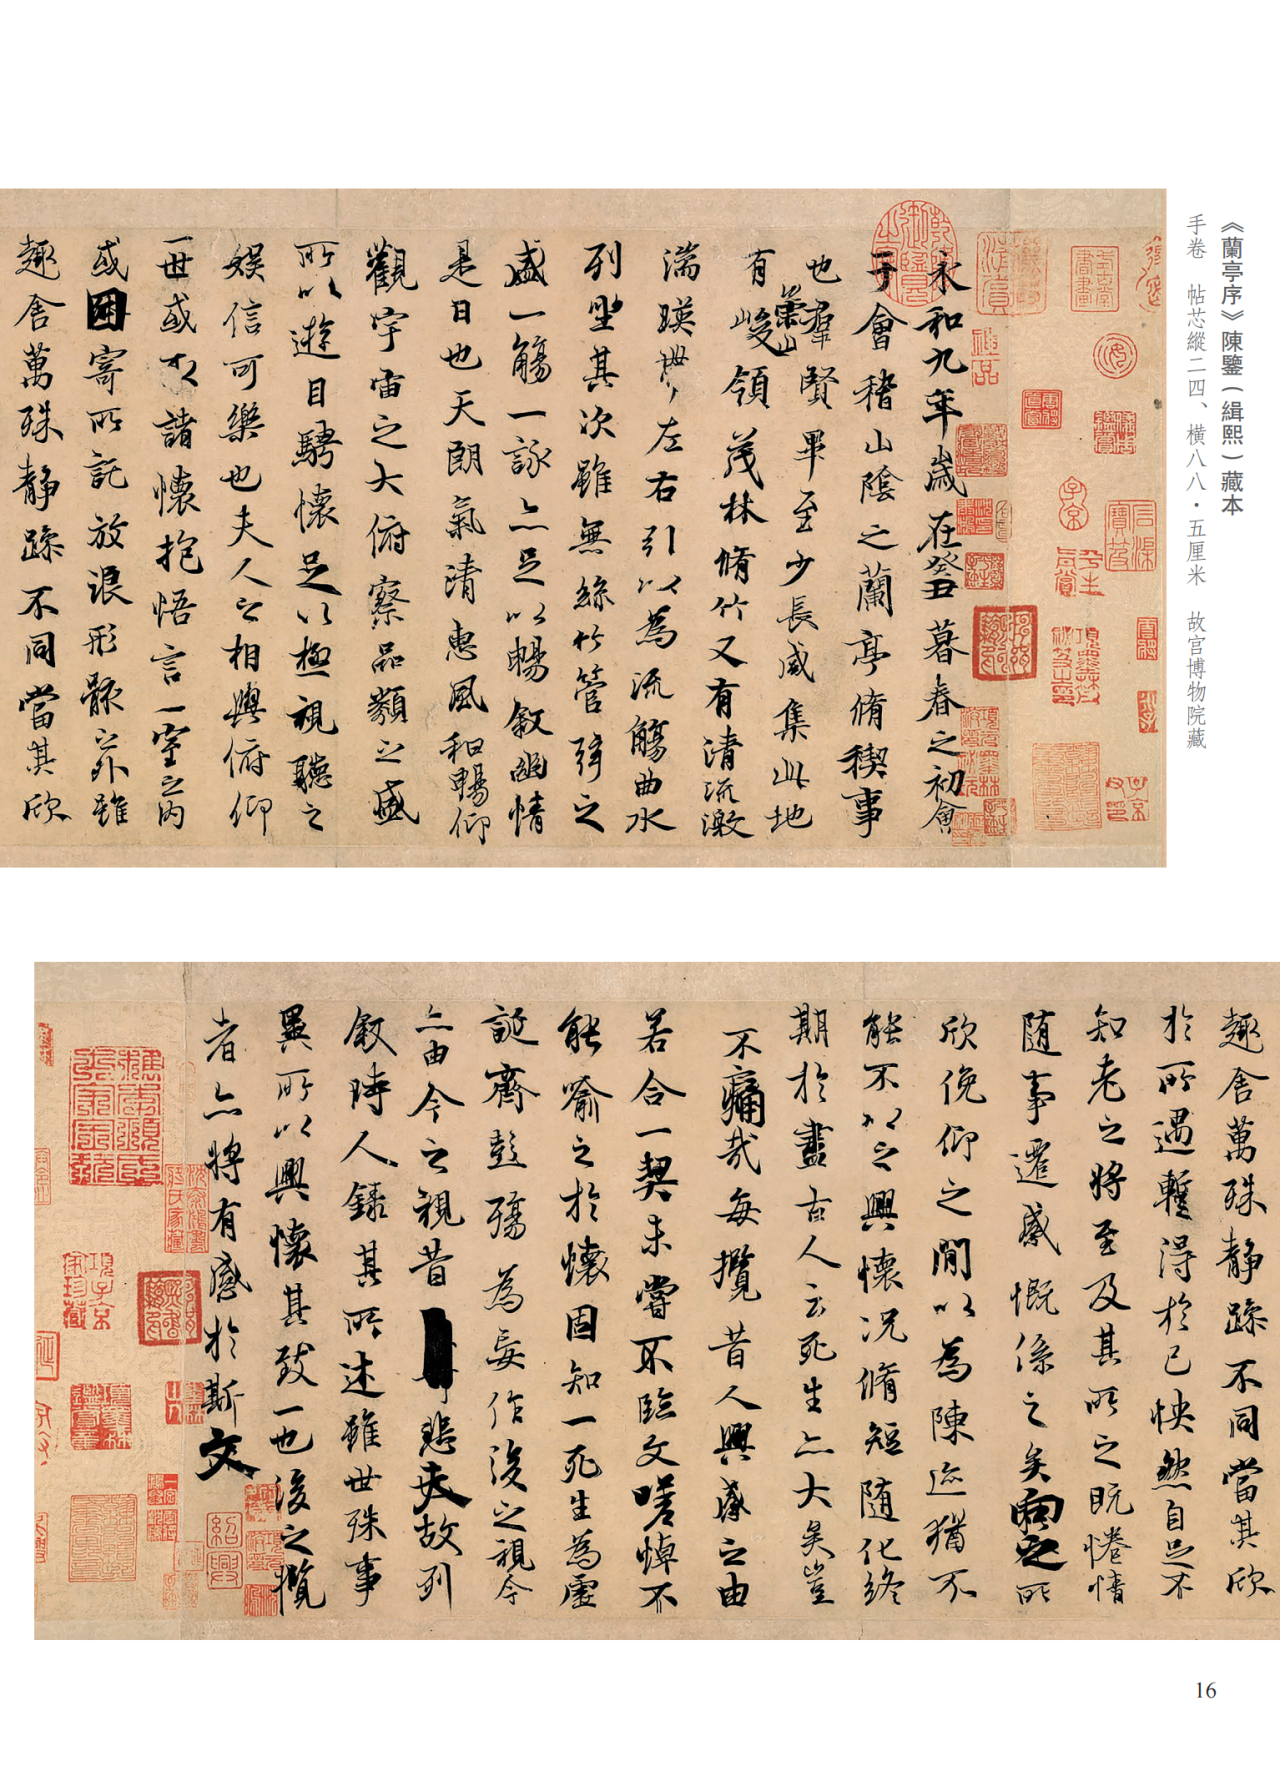 《蘭亭序》陳鑒(緝熙)藏本
手卷 帖芯縱二四、橫八八·五厘米 故宮博物院藏
永和九年歲在癸丑暮春之初會
于會稽山陰之蘭亭脩稧事
也羣賢畢至少長咸集此地
有崇山峻領茂林脩竹又有清流激
湍暎帶左右引以為流觴曲水
列坐其次雖無絲竹管弦之
盛一觴一詠亦足以暢敘幽情
是日也天朗氣清惠風和暢仰
觀宇宙之大俯察品類之盛
所以遊目騁懷足以極視聽之
娛信可樂也夫人之相與俯仰
一世或取諸懷抱悟言一室之內
或因寄所託放浪形骸之外雖
趣舍萬殊静躁不同當其欣
趣舍萬殊静躁不同當其欣
於所遇蹔得於己怏然自足不
知老之將至及其所之既惓情
随事遷感慨係之矣向之所
欣俛仰之閒以為陳迹猶不
能不以之興懷況脩短随化終
期於盡古人云死生亦大矣豈
不痛哉每攬昔人興感之由
若合一契未嘗不臨文嗟悼不
能喻之於懷固知一死生為虛
誕齊彭殤為妄作後之視今
亦由今之視昔悲夫故列
敘時人錄其所述雖世殊事
異所以興懷其致一也後之攬
者亦將有感於斯文
紹興
16